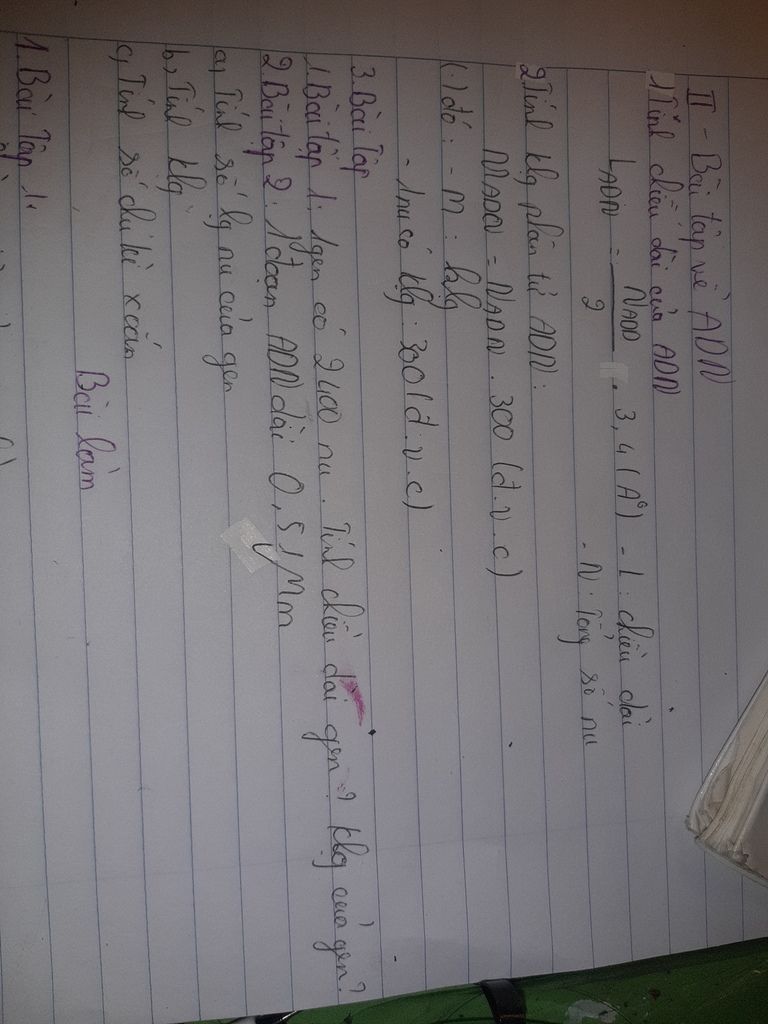 II - Bài tập về ADN
1. Tính chiều dài của ADN
L ADN = N ADN / 2 . 3,4 (A°) - L: chiều dài
- N: Tổng số nu
2. Tính klg phân tử ADN:
M ADN = N ADN . 300 (đ.v.c)
(.) đó: - M: klg
- 1 nu có klg: 300 (đ.v.c)
3. Bài Tập
1. Bài tập 1: 1 gen có 2400 nu. Tính chiều dài gen? klg của gen?
2. Bài tập 2: 1 đoạn ADN dài 0,51 Mm
a, Tính số lg nu của gen
b, Tính klg
c, Tính số chu kì xoắn
Bài làm
1. Bài Tập 1: